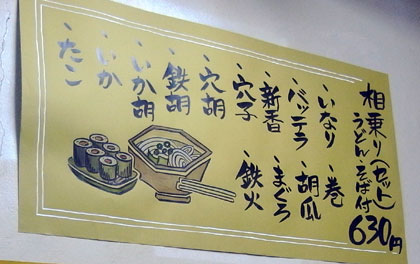 相乗り(セット)
うどん・そば付
630円
・いなり ・巻
・バッテラ ・胡瓜
・新香 ・まぐろ
・穴子 ・鉄火
・穴胡
・鉄胡
・いか胡
・いか
・たこ